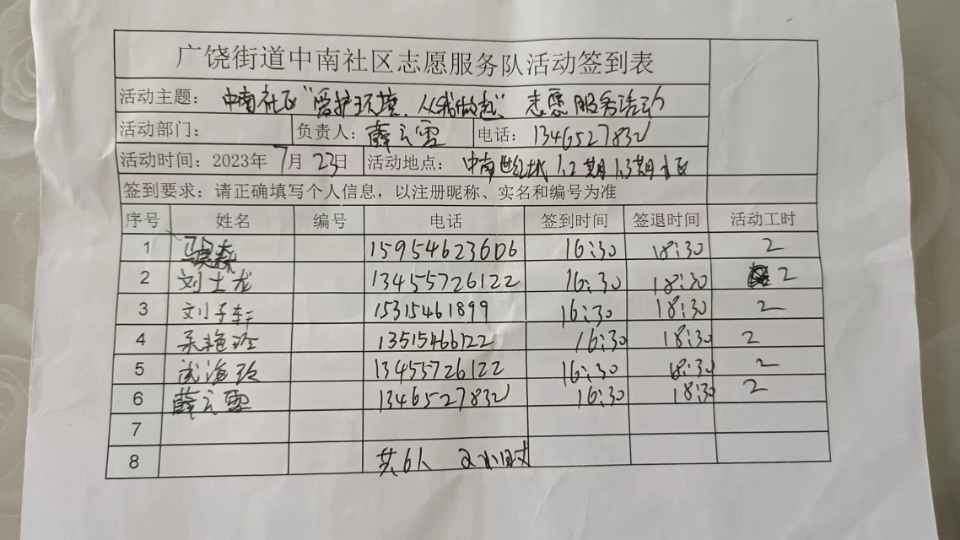 广饶街道中南社区志愿服务队活动签到表
活动主题： 中南社区“爱护环境，从我做起”志愿服务活动
活动部门： 负责人：薛云雪 电话：13465278321
活动时间：2023年7月23日 活动地点：中南世纪城1.2期1.3期小区
签到要求：请正确填写个人信息，以注册昵称、实名和编号为准
序号 姓名 编号 电话 签到时间 签退时间 活动工时
1 15954623606 16:30 18:30 2
2 刘士龙 13455726122 16:30 18:30 2
3 刘子轩 15315461899 16:30 18:30 2
4 13515466122 16:30 18:30 2
5 武海玲 13455726122 16:30 18:30 2
6 薛云雪 13465278321 16:30 18:30 2
7
8 共6人 2小时